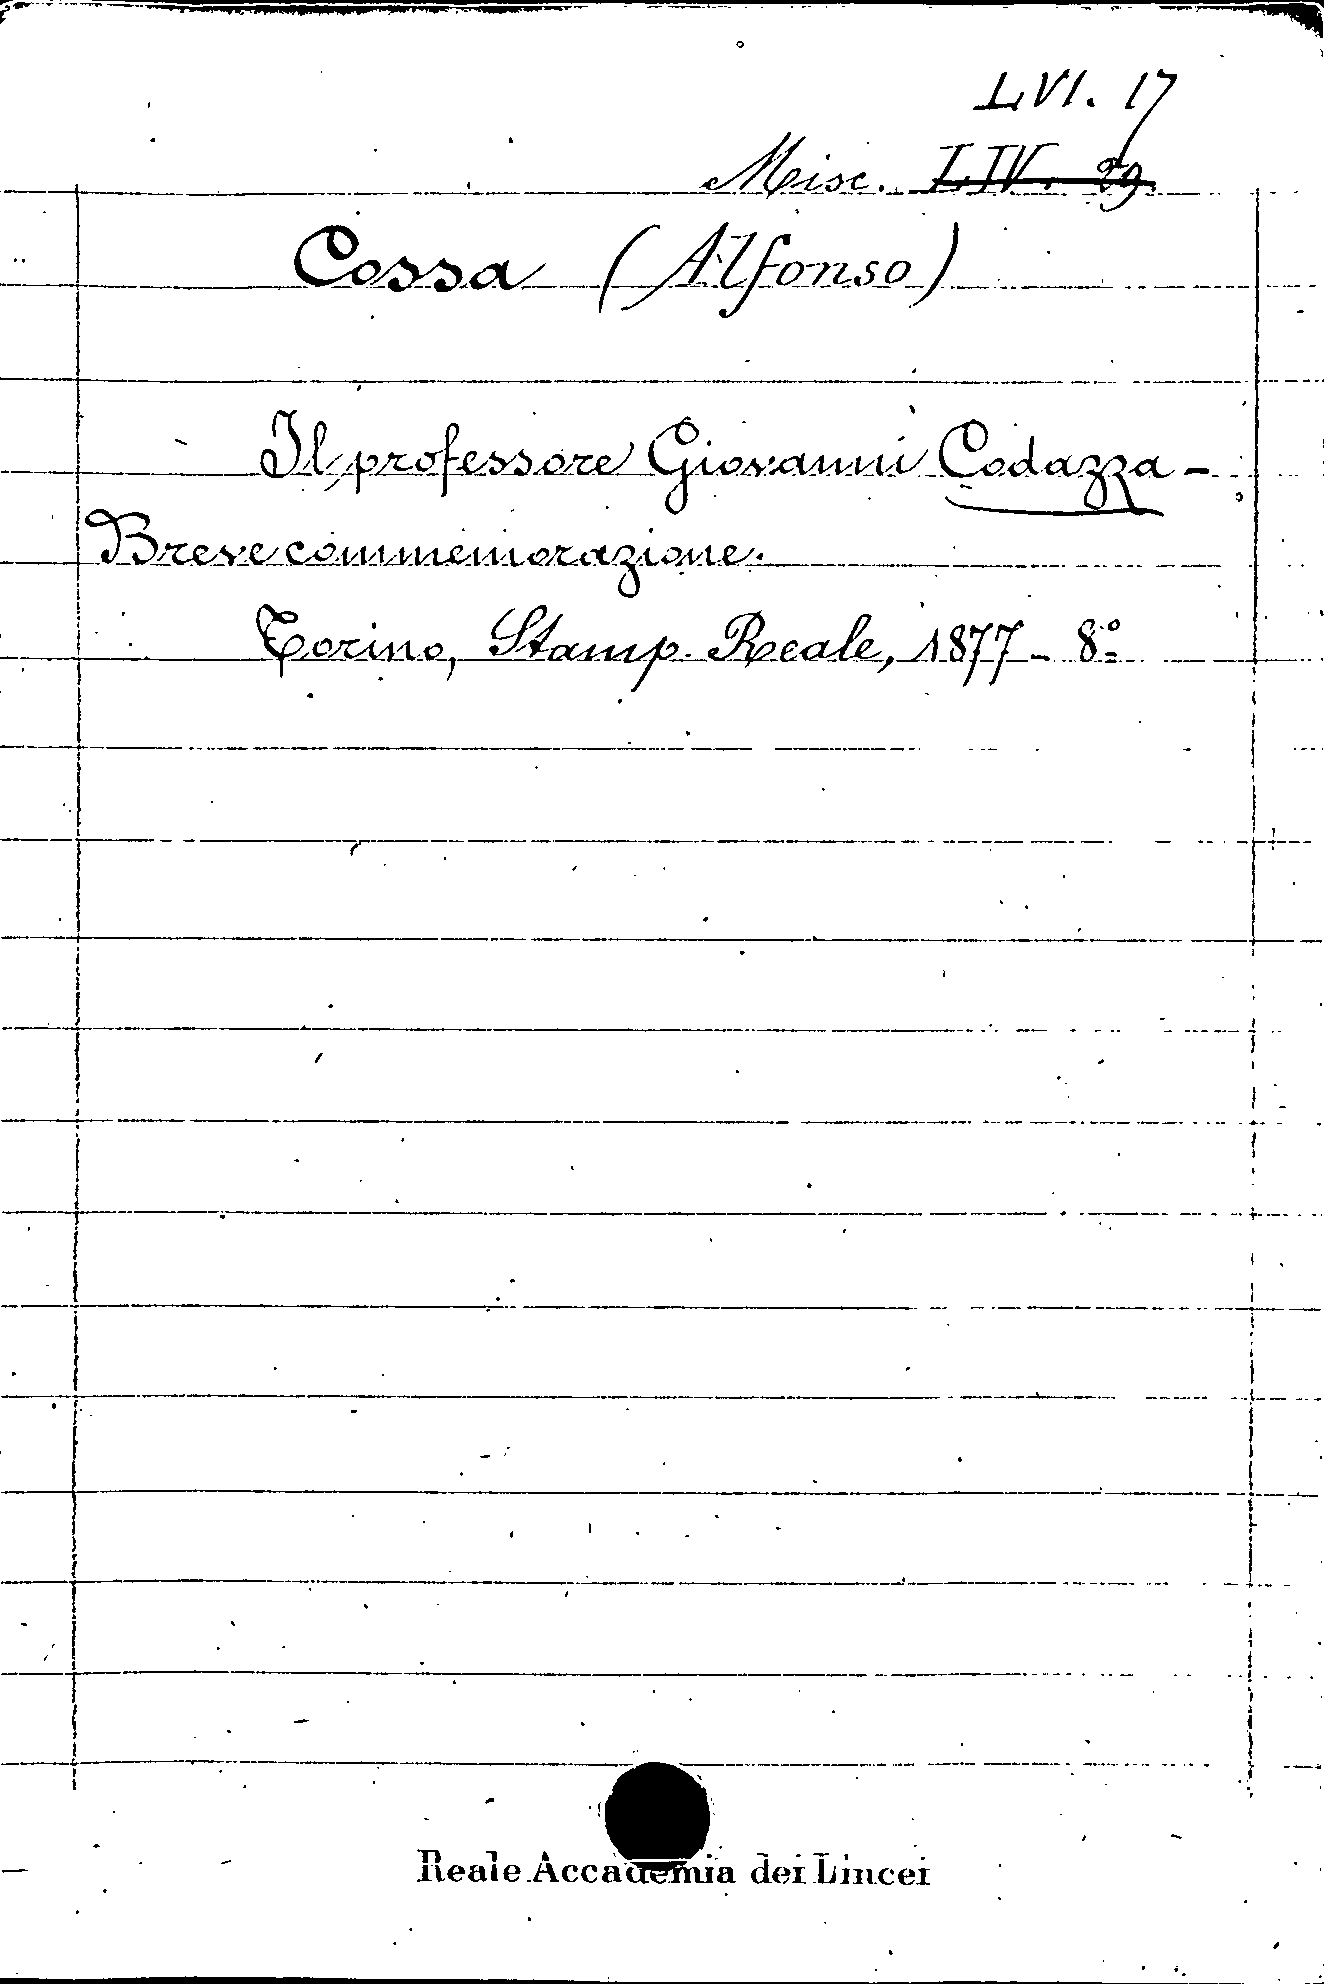 LVI. 17
Misc. LIV. 29.
Cossa (Alfonso)
Il professore Giovanni Codazza -
Breve commemorazione.
Torino, Stamp. Reale, 1877 - 8º
Reale Accademia dei Lincei